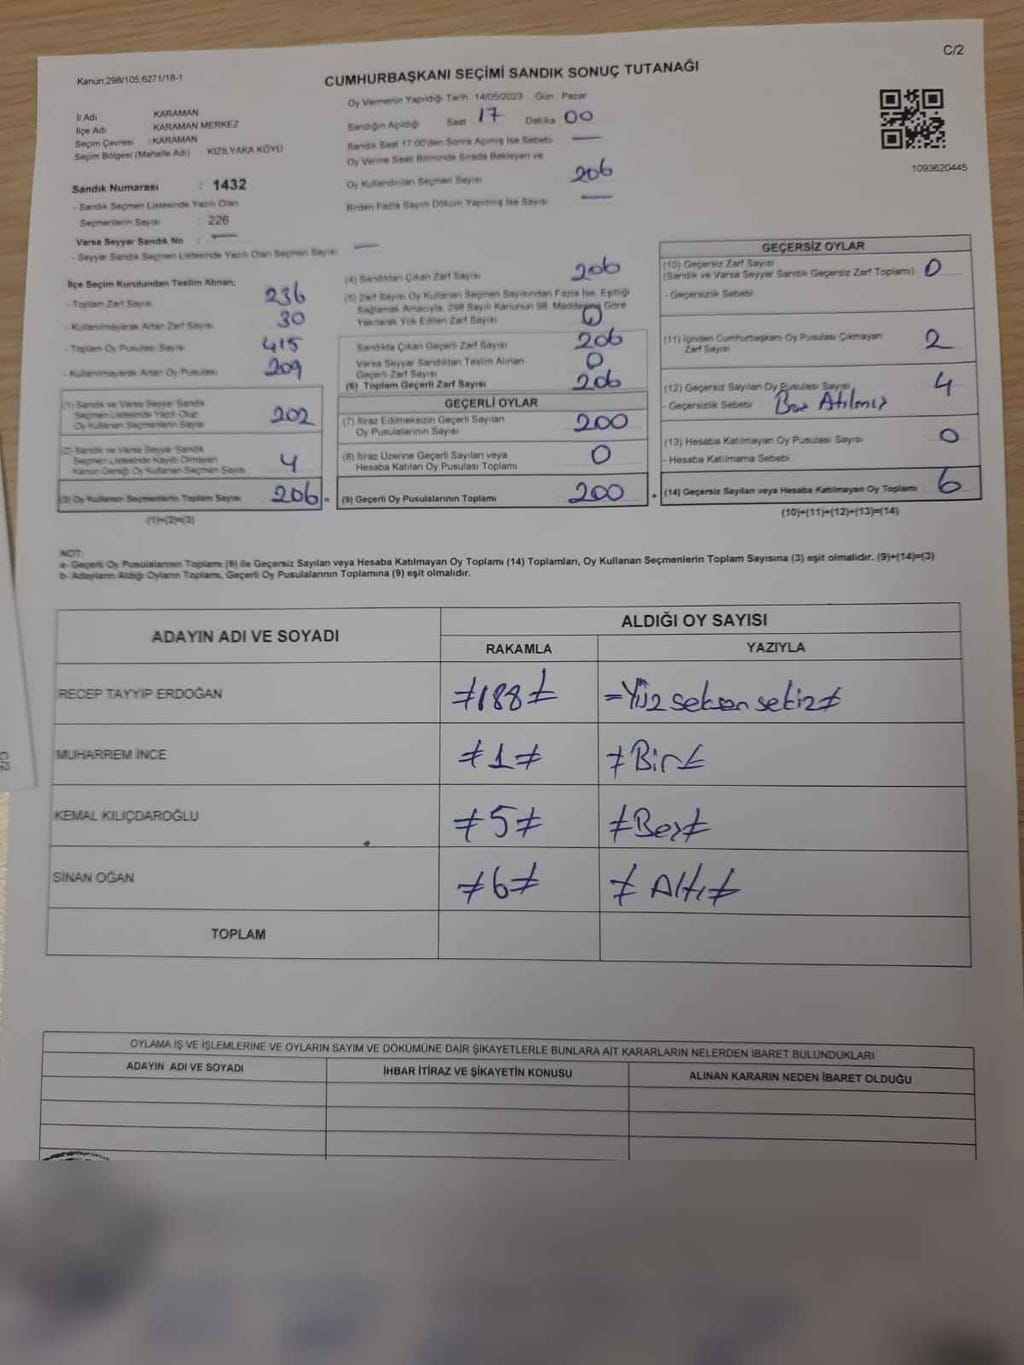 C/2
Kanun:298/105,6271/18-1
CUMHURBAŞKANI SEÇİMİ SANDIK SONUÇ TUTANAĞI
İl Adı KARAMAN
İlçe Adı KARAMAN MERKEZ
Seçim Çevresi : KARAMAN
Seçim Bölgesi (Mahalle Adı) KIZILYAKA KÖYÜ
Sandık Numarası : 1432
- Sandık Seçmen Listesinde Yazılı Olan
Seçmenlerin Sayısı : 226
Varsa Seyyar Sandık No : —
- Seyyar Sandık Seçmen Listesinde Yazılı Olan Seçmen Sayısı : —
Oy Vermenin Yapıldığı Tarih : 14/05/2023 Gün : Pazar
Sandığın Açıldığı Saat 17 Dakika 00
Sandık Saat 17:00'den Sonra Açılmış İse Sebebi —
Oy Verme Saati Bitiminde Sırada Bekleyen ve
Oy Kullandırılan Seçmen Sayısı 206
Birden Fazla Sayım Döküm Yapılmış İse Sayısı —
1093620445
İlçe Seçim Kurulundan Teslim Alınan;
- Toplam Zarf Sayısı 236
- Kullanılmayarak Artan Zarf Sayısı 30
- Toplam Oy Pusulası Sayısı 415
- Kullanılmayarak Artan Oy Pusulası 209
(1) Sandık ve Varsa Seyyar Sandık
Seçmen Listesinde Yazılı Olup
Oy Kullanan Seçmenlerin Sayısı 202
(2) Sandık ve Varsa Seyyar Sandık
Seçmen Listesinde Kaydı Olmayan
Kanun Gereği Oy Kullanan Seçmen Sayısı 4
(3) Oy Kullanan Seçmenlerin Toplam Sayısı 206 =
(1)+(2)=(3)
(4) Sandıktan Çıkan Zarf Sayısı 206
(5) Zarf Sayısı Oy Kullanan Seçmen Sayısından Fazla İse, Eşitliği
Sağlamak Amacıyla, 298 Sayılı Kanunun 98. Maddesine Göre
Yakılarak Yok Edilen Zarf Sayısı 0
Sandıkta Çıkan Geçerli Zarf Sayısı 206
Varsa Seyyar Sandıktan Teslim Alınan
Geçerli Zarf Sayısı 0
(6) Toplam Geçerli Zarf Sayısı 206
GEÇERLİ OYLAR
(7) İtiraz Edilmeksizin Geçerli Sayılan
Oy Pusulalarının Sayısı 200
(8) İtiraz Üzerine Geçerli Sayılan veya
Hesaba Katılan Oy Pusulası Toplamı 0
(9) Geçerli Oy Pusulalarının Toplamı 200 +
GEÇERSİZ OYLAR
(10) Geçersiz Zarf Sayısı
(Sandık ve Varsa Seyyar Sandık Geçersiz Zarf Toplamı) 0
- Geçersizlik Sebebi
(11) İçinden Cumhurbaşkanı Oy Pusulası Çıkmayan
Zarf Sayısı 2
(12) Geçersiz Sayılan Oy Pusulası Sayısı 4
- Geçersizlik Sebebi Boş Atılmış
(13) Hesaba Katılmayan Oy Pusulası Sayısı 0
- Hesaba Katılmama Sebebi
(14) Geçersiz Sayılan veya Hesaba Katılmayan Oy Toplamı 6
(10)+(11)+(12)+(13)=(14)
NOT:
a- Geçerli Oy Pusulalarının Toplamı (9) ile Geçersiz Sayılan veya Hesaba Katılmayan Oy Toplamı (14) Toplamları, Oy Kullanan Seçmenlerin Toplam Sayısına (3) eşit olmalıdır. (9)+(14)=(3)
b- Adayların Aldığı Oyların Toplamı, Geçerli Oy Pusulalarının Toplamına (9) eşit olmalıdır.
ADAYIN ADI VE SOYADI ALDIĞI OY SAYISI
RAKAMLA YAZIYLA
RECEP TAYYİP ERDOĞAN ≠188≠ =Yüz seksen sekiz≠
MUHARREM İNCE ≠1≠ ≠Bir≠
KEMAL KILIÇDAROĞLU ≠5≠ ≠Beş≠
SİNAN OĞAN ≠6≠ ≠Altı≠
TOPLAM
OYLAMA İŞ VE İŞLEMLERİNE VE OYLARIN SAYIM VE DÖKÜMÜNE DAİR ŞİKAYETLERLE BUNLARA AİT KARARLARIN NELERDEN İBARET BULUNDUKLARI
ADAYIN ADI VE SOYADI İHBAR İTİRAZ VE ŞİKAYETİN KONUSU ALINAN KARARIN NEDEN İBARET OLDUĞU